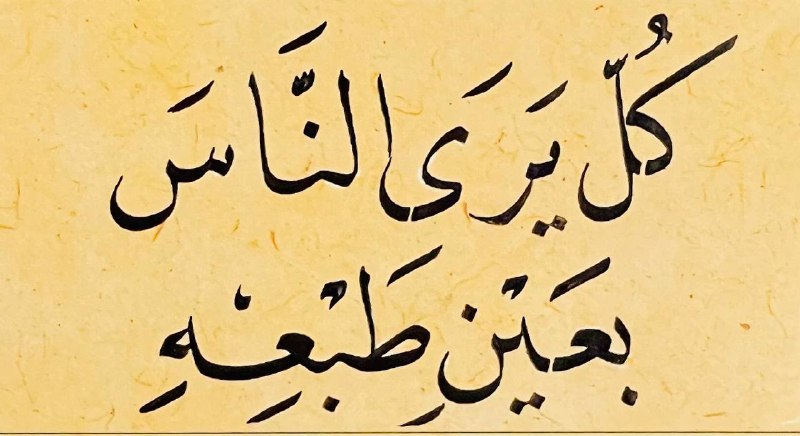 كُلّ يَرَى النَّاسَ
بعَيْنِ طَبْعِهِ